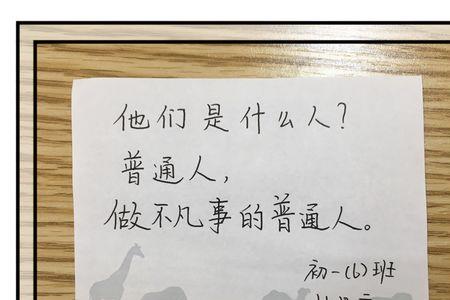 他们是什么人？
普通人，
做不凡事的普通人。
初一(6)班